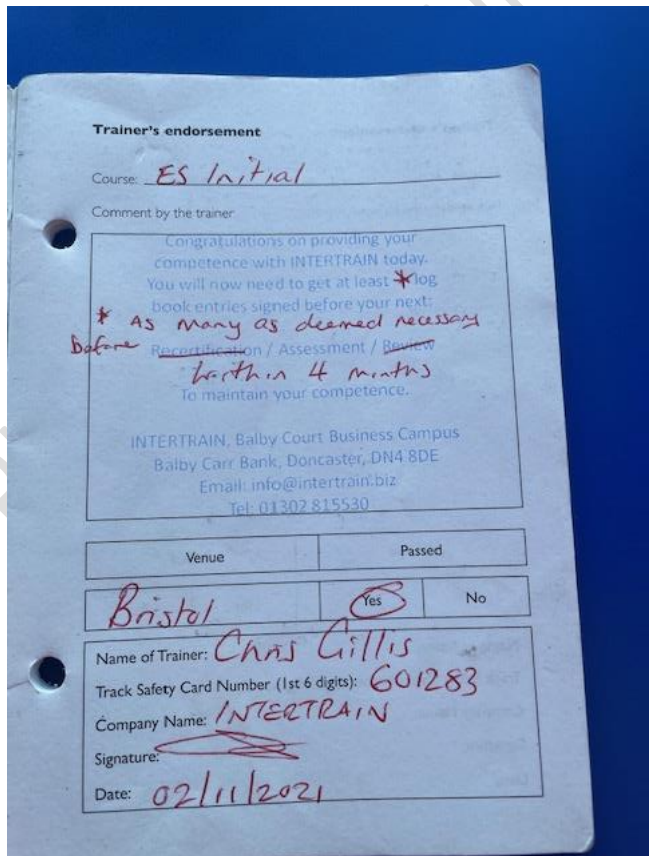 Trainer's endorsement
Course: ES Initial
Comment by the trainer
Congratulations on providing your
competence with INTERTRAIN today.
You will now need to get at least * log
book entries signed before your next:
* As many as deemed necessary
before Recertification / Assessment / Review
Within 4 months
To maintain your competence.
INTERTRAIN, Balby Court Business Campus
Balby Carr Bank, Doncaster, DN4 8DE
Email: info@intertrain.biz
Tel: 01302 815530
Venue Passed
Bristol Yes No
Name of Trainer: Chris Gillis
Track Safety Card Number (1st 6 digits): 601283
Company Name: INTERTRAIN
Signature:
Date: 02/11/2021